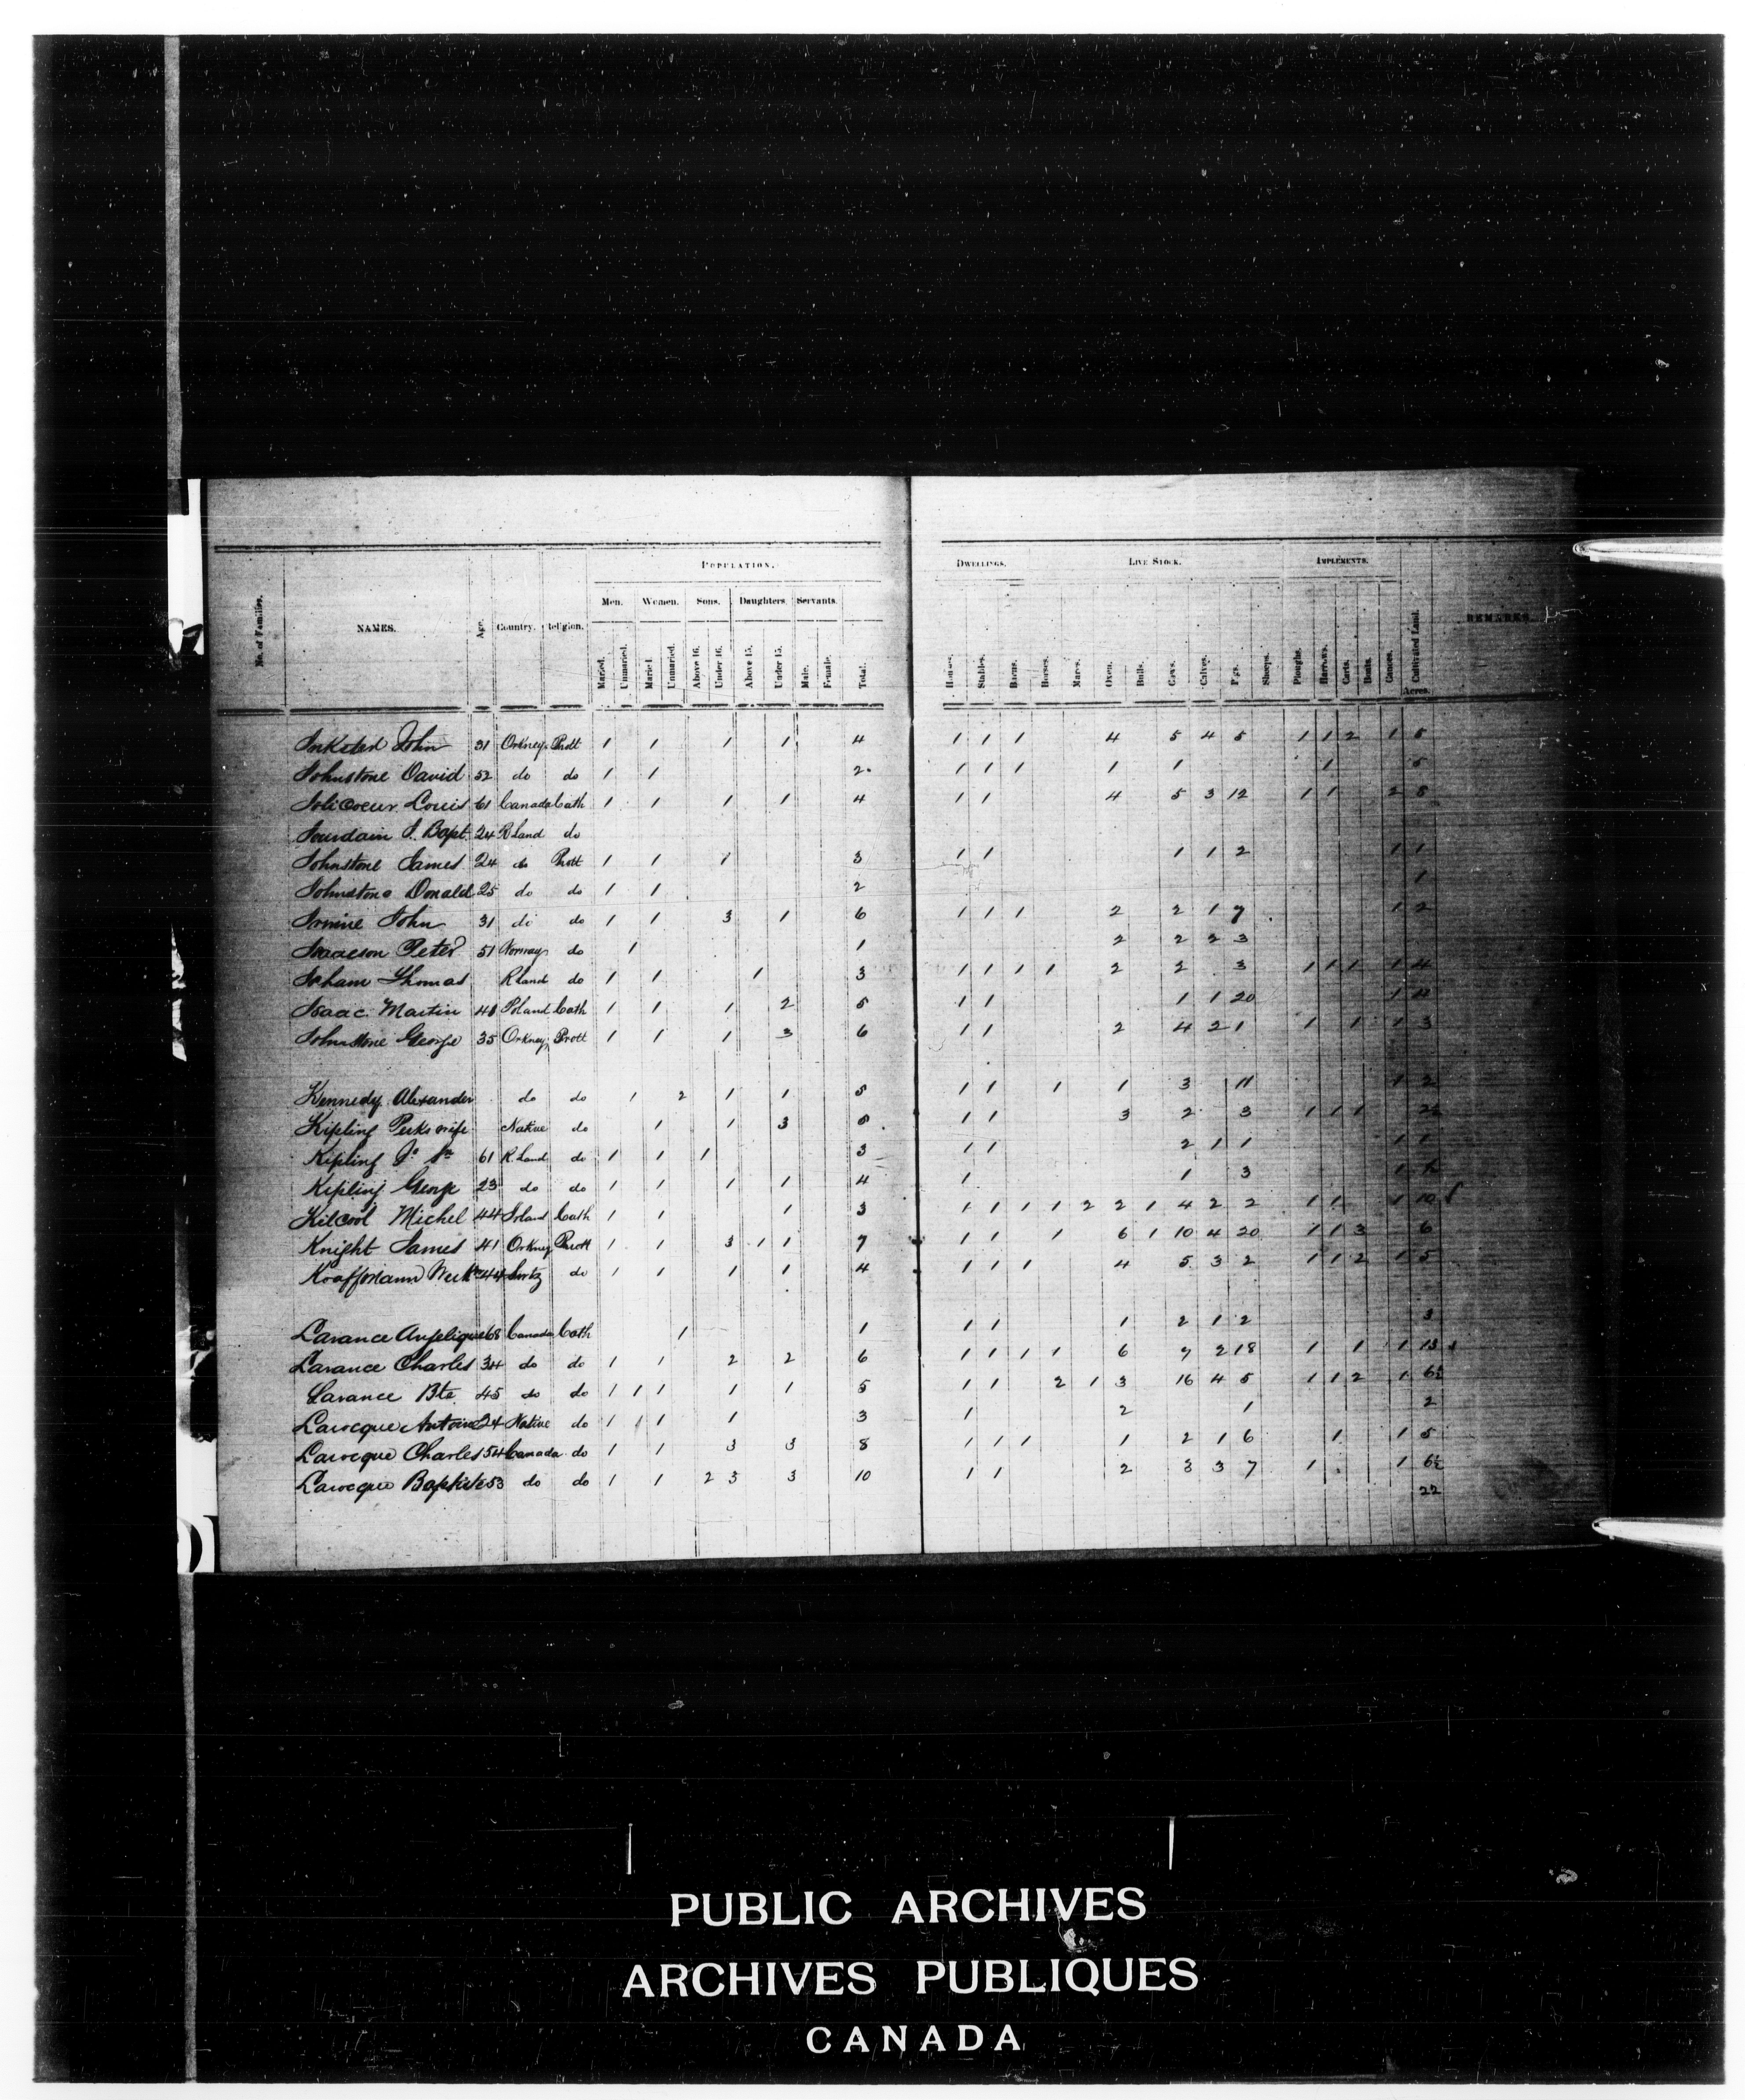 POPULATION.
DWELLINGS. LIVE STOCK. IMPLEMENTS.
Men. Women. Sons. Daughters. Servants.
No. of Families. NAMES. Age. Country. Religion. Married. Unmarried. Married. Unmarried. Above 16. Under 16. Above 15. Under 15. Male. Female. Total. Houses. Stables. Barns. Horses. Mares. Oxen. Bulls. Cows. Calves. Pigs. Sheeps. Ploughs. Harrows. Carts. Boats. Canoes. Cultivated Land. Acres. REMARKS.
Inksted John 31 Orkney Prott 1 1 1 1 4 1 1 1 4 5 4 5 1 1 2 1 5
Johnstone David 52 do do 1 1 2 1 1 1 1 1 1 5
Jolicoeur Louis 61 Canada Cath 1 1 1 1 4 1 1 4 5 3 12 1 1 2 8
Jourdain J. Bapt. 24 R Land do
Johnstone James 24 do Prott 1 1 1 3 1 1 1 1 2 1 1
Johnstone Donald 25 do do 1 1 2 1
Irvine John 31 do do 1 1 3 1 6 1 1 1 2 2 1 7 1 2
Isaacson Peter 51 Norway do 1 1 2 2 2 3
Isham Thomas R Land do 1 1 1 3 1 1 1 1 2 2 3 1 1 1 1 4
Isaac Martin 48 Poland Cath 1 1 1 2 5 1 1 1 1 20 1 4
Johnstone George 35 Orkney Prott 1 1 1 3 6 1 1 2 4 2 1 1 1 1 3
Kennedy Alexander do do 1 2 1 1 5 1 1 1 1 3 11 1 2
Kipling Perks wife Native do 1 1 3 5 1 1 3 2 3 1 1 1 2½
Kipling Jo Sr 61 R. Land do 1 1 1 3 1 1 2 1 1 1 1
Kipling George 23 do do 1 1 1 1 4 1 1 3 1
Kilcool Michel 44 Ireland Cath 1 1 1 3 1 1 1 1 2 2 1 4 2 2 1 1 1 10
Knight James 41 Orkney Prott 1 1 3 1 1 7 1 1 1 6 1 10 4 20 1 1 3 6
Koaffmann 44 Switz do 1 1 1 1 4 1 1 1 4 5 3 2 1 1 2 1 5
Lavance Angelique 68 Canada Cath 1 1 1 1 1 2 1 2 3
Lavance Charles 34 do do 1 1 2 2 6 1 1 1 1 6 7 2 18 1 1 1 13
Lavance Bte 45 do do 1 1 1 1 1 5 1 1 2 1 3 16 4 5 1 1 2 1 6½
Larocque Antoine 24 Native do 1 1 1 3 1 2 1 2
Larocque Charles 54 Canada do 1 1 3 3 8 1 1 1 1 2 1 6 1 1 5
Larocque Baptiste 53 do do 1 1 2 3 3 10 1 1 2 3 3 7 1 1 6½
22
PUBLIC ARCHIVES
ARCHIVES PUBLIQUES
CANADA